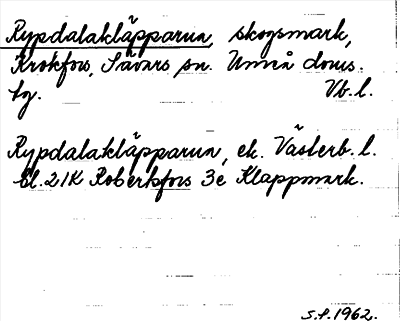 Rypdalakläpparna, skogsmark,
Krokfors, Sävars sn. Umeå doms.
tg. Vb. l.
Rypdalakläpparna, ek. Västerb. l.
bl. 21K Robertsfors 3e Klappmark.
S.P. 1962.